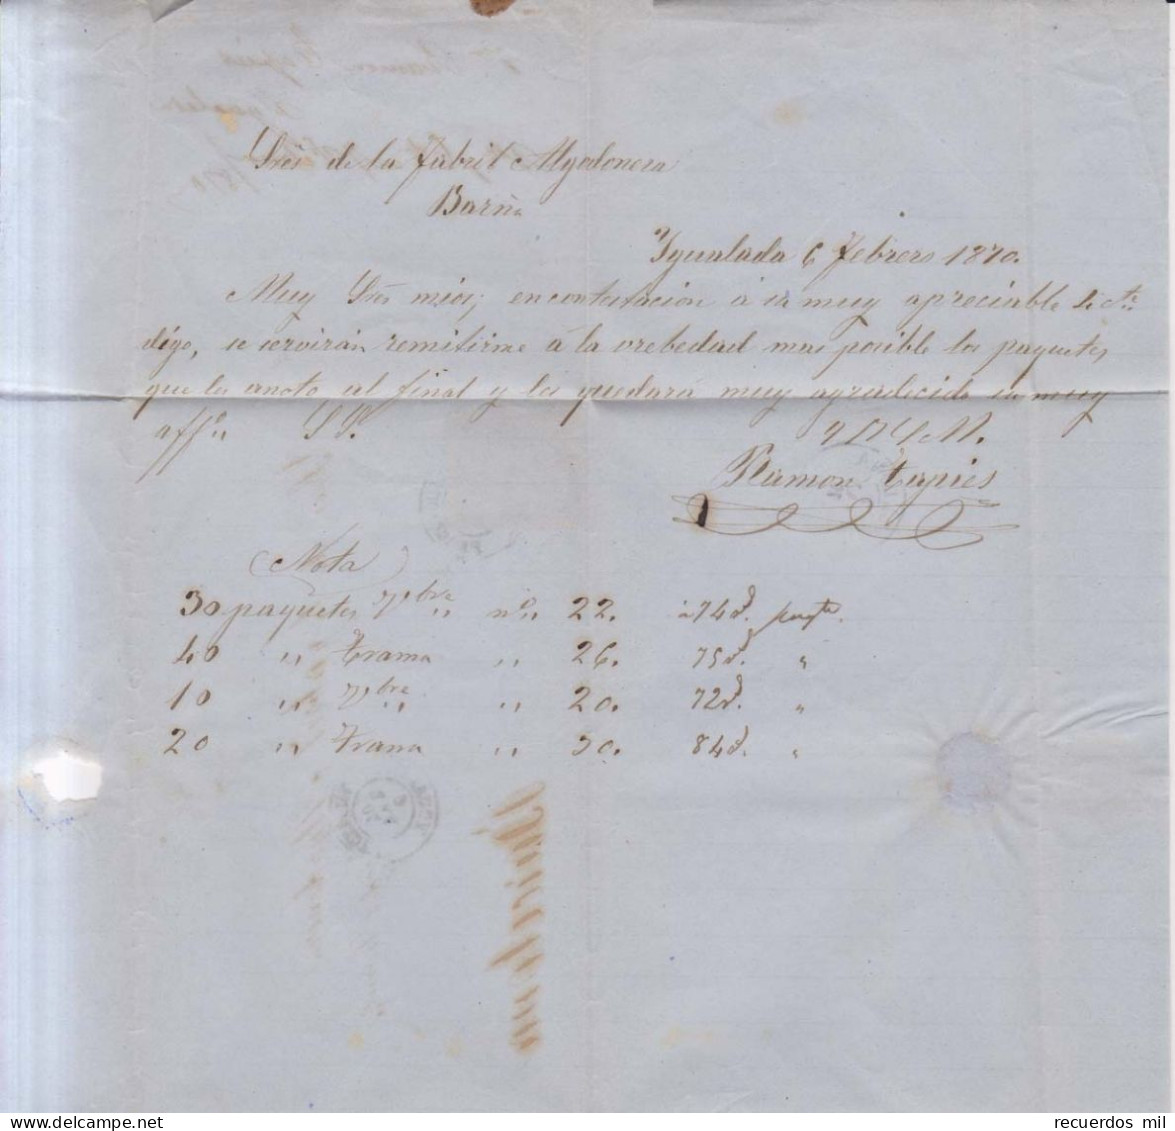 Sres de la fabril Algodonera
Barna
Ygualada 6 Febrero 1870.
Muy Sres mios; en contestacion á su muy apreciable
digo, se servirán remitirme á la vrebedad mas posible los paquetes
que les anoto al final y les quedará muy agradecido su muy
affmo S. S.
Q B S M.
Ramon Tapies
Nota
30 paquetes nº 22. á 74 rs
40 " Trama " 26. 75 rs "
10 " " 20. 72 rs "
20 " Trama " 30. 84 rs "
recuerdos mil